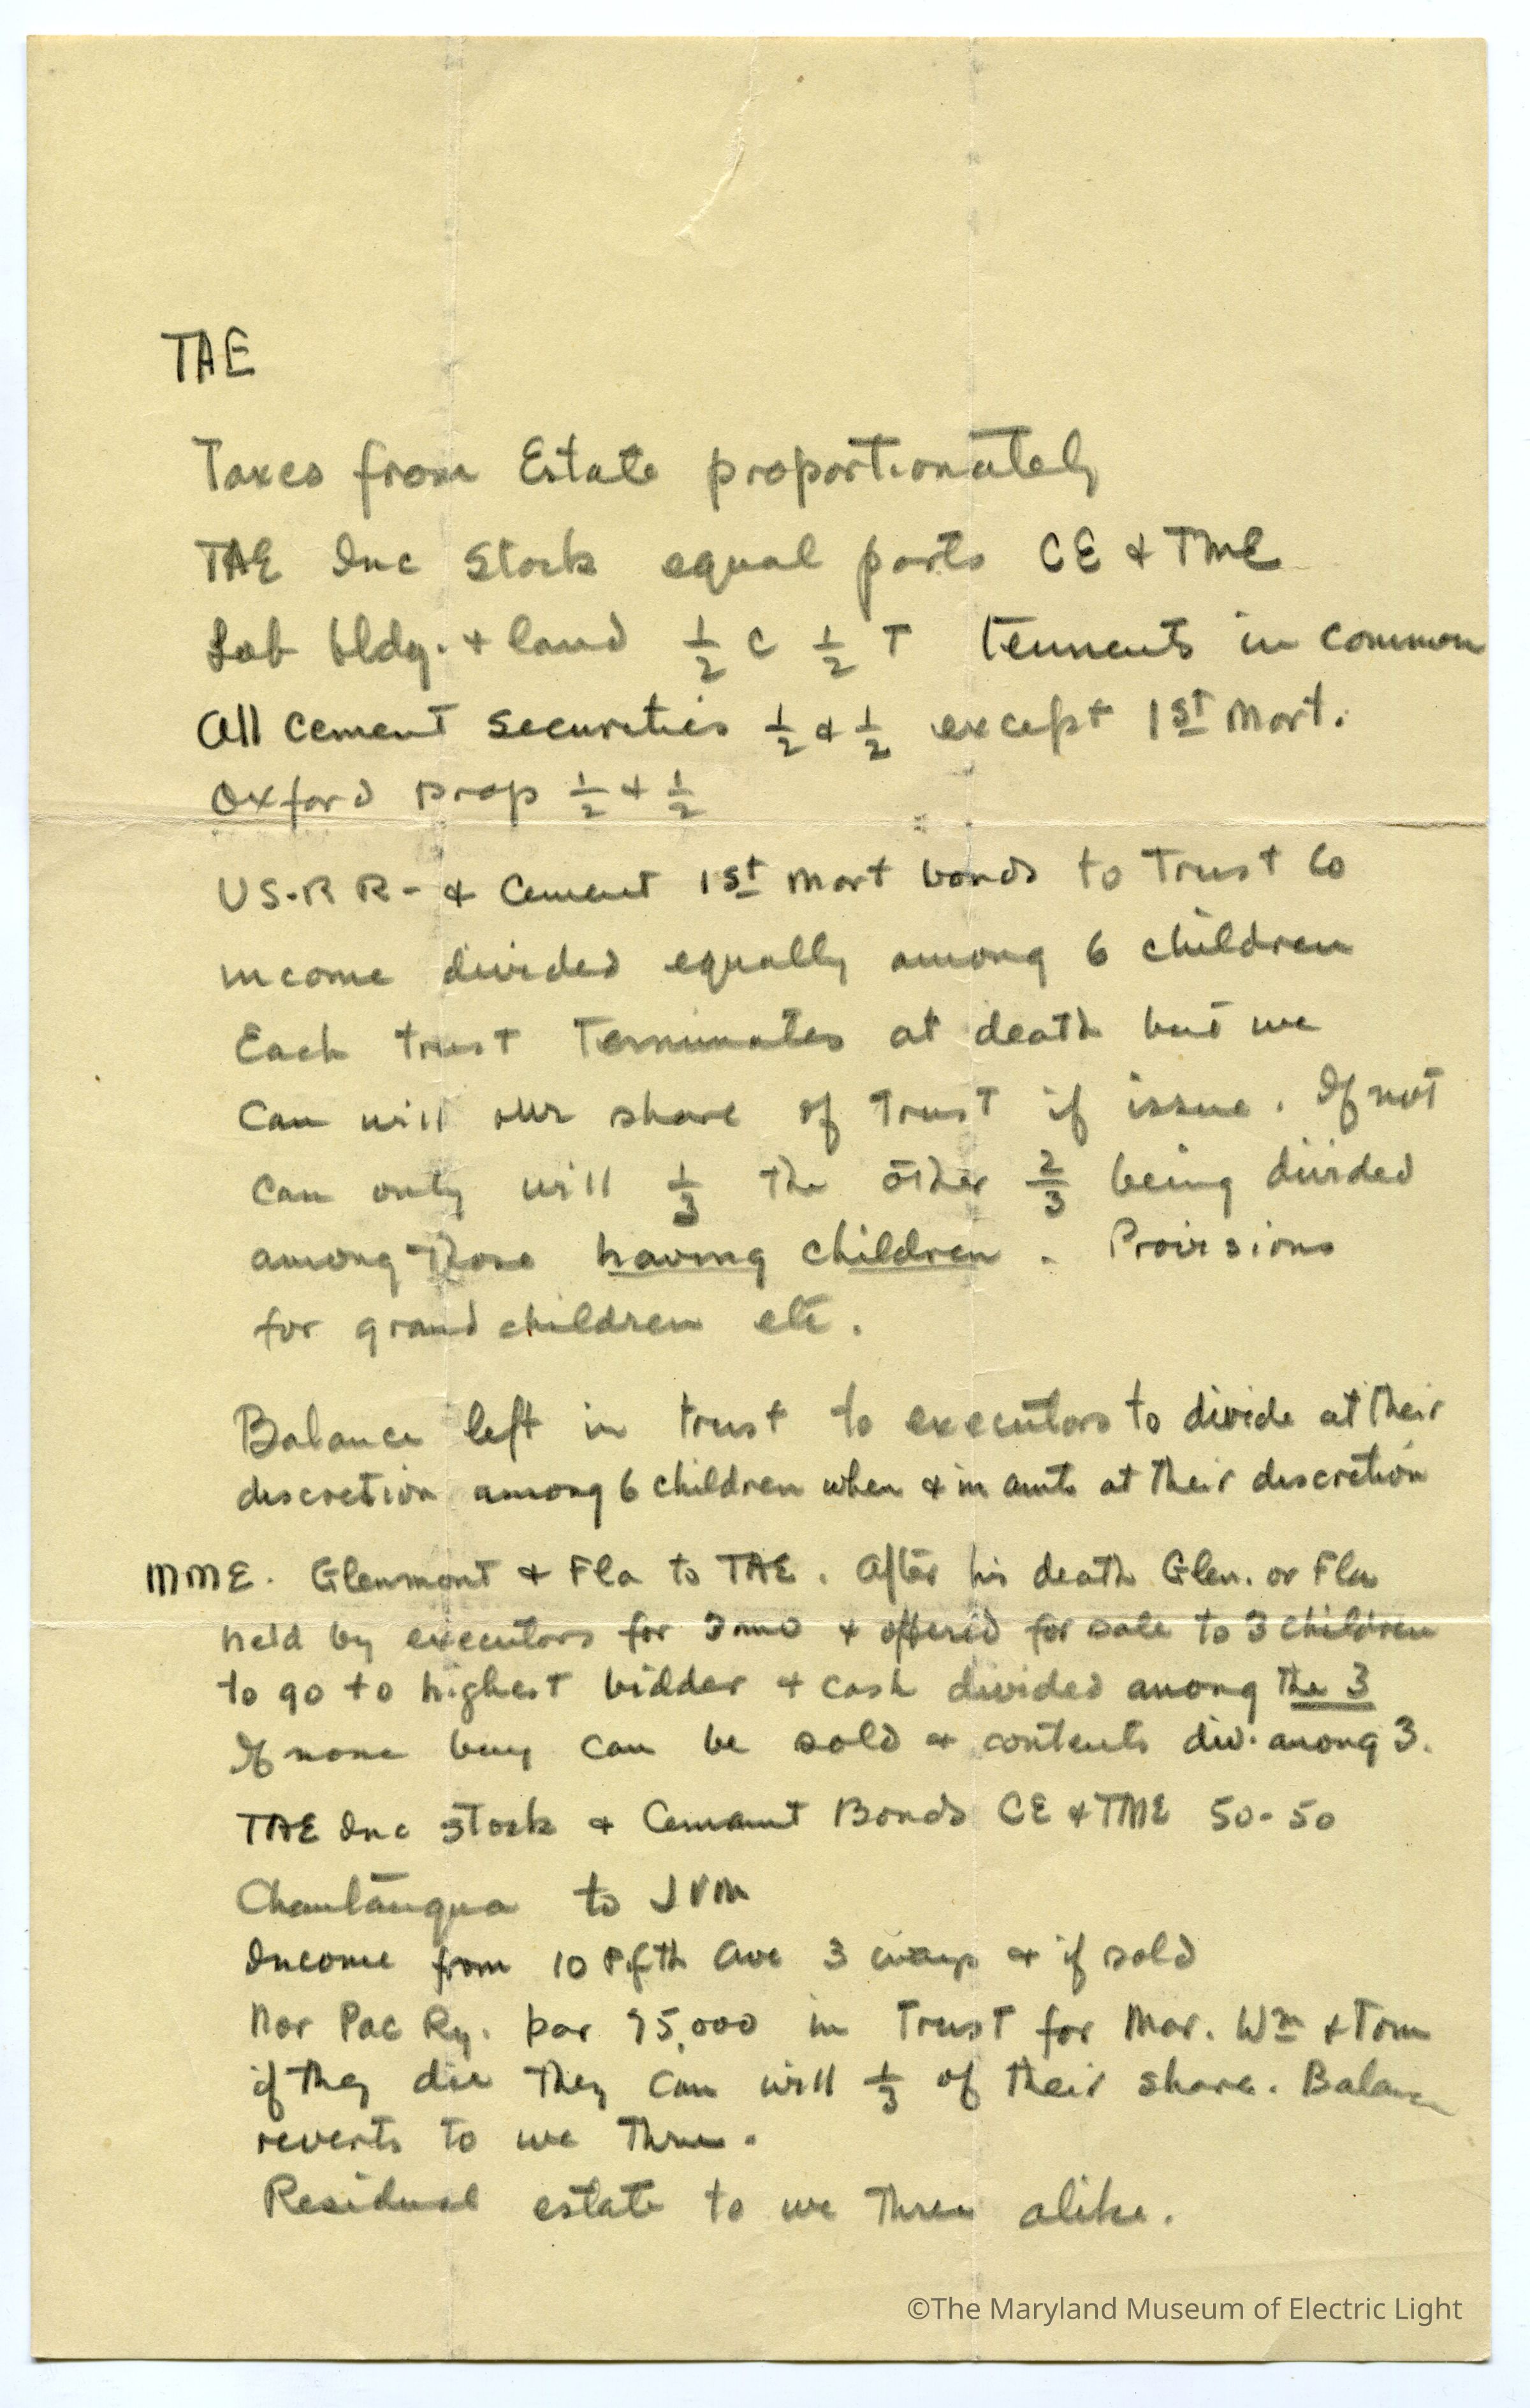 TAE
Taxes from Estate proportionately
TAE Inc Stock equal parts CE & TME
Lab bldg. + land 1/2 C 1/2 T tennents in common
All Cement Securities 1/2 & 1/2 except 1st Mort.
Oxford Prop 1/2 + 1/2
US-RR- & Cement 1st Mort bonds to Trust Co
income divided equally among 6 children
Each trust terminates at death but we
can will our share of trust if issue. If not
can only will 1/3 the other 2/3 being divided
among those having children. Provisions
for grandchildren etc.
Balance left in trust to executors to divide at their
discretion among 6 children when & in amts at their discretion
MME. Glenmont & Fla to TAE. After his death Glen. or Fla
held by executors for 3 mo & offered for sale to 3 children
to go to highest bidder + cash divided among the 3
If none buy can be sold & contents div. among 3.
TAE Inc Stock & Cement Bonds CE & TME 50-50
Chautauqua to JVM
Income from 10 Fifth Ave 3 ways & if sold
Nor Pac Ry. par 95,000 in Trust for Mar. Wm & Tom
if they die they can will 1/3 of their share. Balance
reverts to we three.
Residual estate to we three alike.
©The Maryland Museum of Electric Light